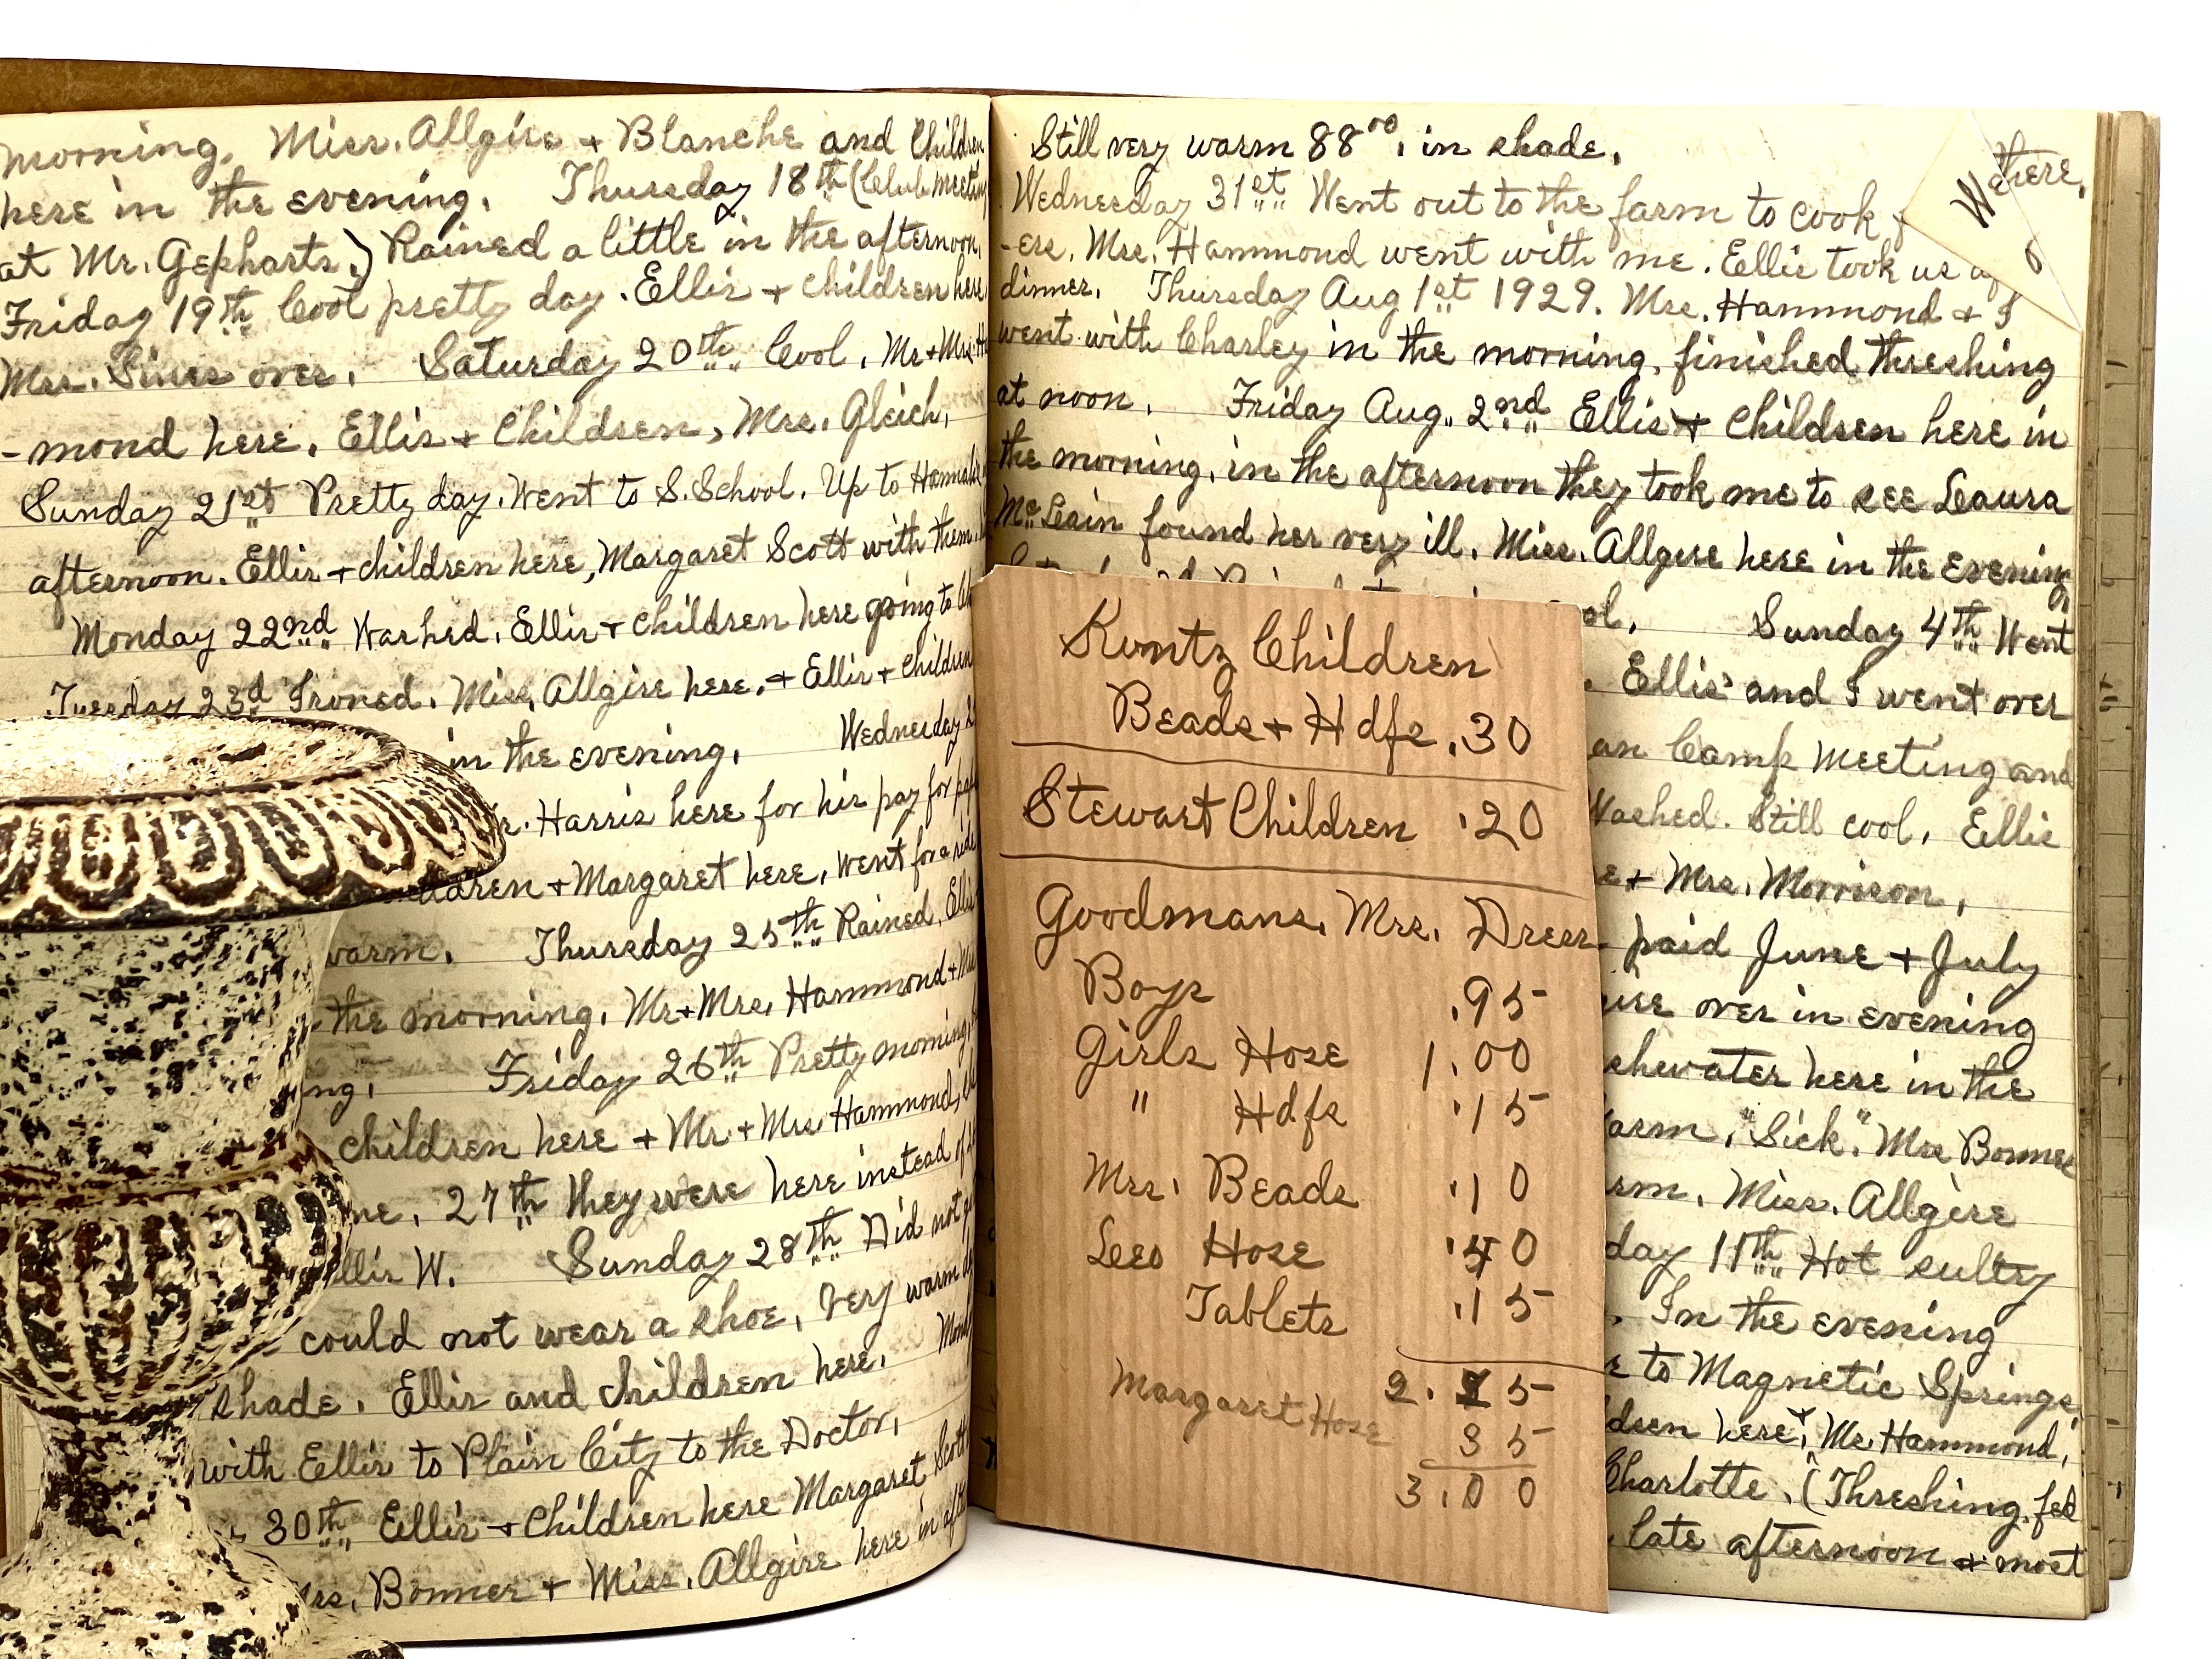 morning. Miss. Allgire + Blanche and Children
here in the evening. Thursday 18th (Club meeting
at Mr. Gepharts.) Rained a little in the afternoon.
Friday 19th Cool pretty day. Ellis + Children here
Mrs. Sines over. Saturday 20th Cool. Mr + Mrs. Ha
-mond here. Ellis + Children, Mrs. Gleich.
Sunday 21st Pretty day. Went to S. School. Up to Hannahs
afternoon. Ellis + children here, Margaret Scott with them.
Monday 22nd Washed. Ellis + children here going to
Tuesday 23d Ironed. Miss, Allgire here. + Ellis + children
in the evening. Wednesday 2
r. Harris here for his pay for
ldren + Margaret here, went for a ride
warm. Thursday 25th Rained, Ellis
the morning. Mr + Mrs. Hammond +
ng. Friday 26th Pretty morning.
children here + Mr. + Mrs. Hammond,
me. 27th they were here instead of
llis W. Sunday 28th Did not
could not wear a shoe, Very warm
shade. Ellis and children here. Mond
with Ellis to Plain City to the Doctor.
30th Ellis + Children here Margaret Scott
rs. Bonner + Miss. Allgire here in aft
Still very warm 88°°. in shade.
Wednesday 31st Went out to the farm to cook
-ers. Mrs. Hammond went with me. Ellis took us
dinner. Thursday Aug 1st 1929. Mrs. Hammond + I
went with Charley in the morning. finished threshing
at noon. Friday Aug. 2nd Ellis + Children here in
the morning. in the afternoon they took me to see Laura
McLain found her very ill. Miss. Allgire here in the evening
ol. Sunday 4th Went
. Ellis and I went over
an Camp Meeting and
Washed. Still cool. Ellis
e + Mrs. Morrison.
paid June + July
ire over in evening
shewater here in the
arm. "Sick". Mrs Bonner
rm. Miss. Allgire
day 11th Hot sultry
. In the evening
e to Magnetic Springs
ldren here, + Mr. Hammond.
Charlotte. (Threshing. fed
. late afternoon + most
there.
Kuntz Children
Beads + Hdfs .30
Stewart Children .20
Goodmans. Mrs. Dress
Boys .95
Girls Hose 1.00
" Hdfs .15
Mrs. Beads .10
Leos Hose .40
Tablets .15
2. 5
Margaret Hose 35
3.00